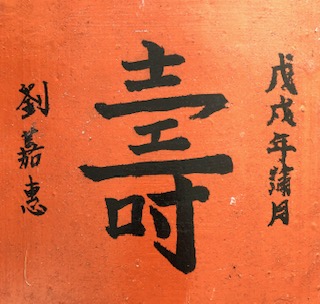 戊戌年蒲月
壽
劉嘉惠